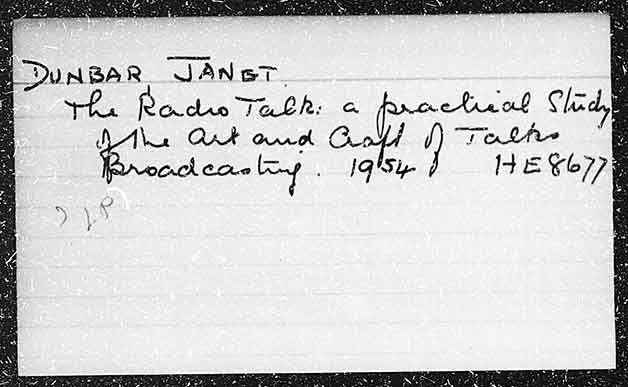 DUNBAR, JANET.
The Radio Talk: a practical Study
of the Art and Craft of Talks
Broadcasting. 1954 HE8677